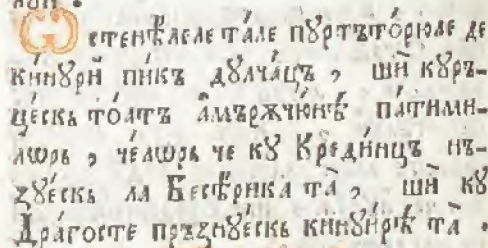 Ѡстенѣлеле та́ле пꙋртъто́рюле де
ки́нꙋрй пи́къ дꙋлча́цъ , шѝ кꙋръ-
це́скъ то́атъ а҆мъръчю́нѣ па́тими-
лѡрь , че́лѡрь че кꙋ Креди́нцъ нъ-
зꙋе́скь ла Бесѣ́рика та̀ , шѝ кꙋ
Дра́госте пръзнꙋе́скь кинꙋи́рѣ та̀ .